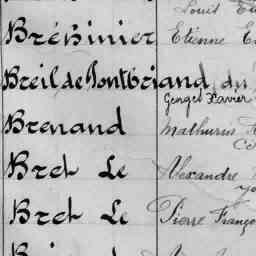 Louis
Bréhinier Etienne
Breil de Pontbriand du
Georges Xavier
Brenand Mathurin
Bret Le Alexandre
Bret Le Pierre Franço